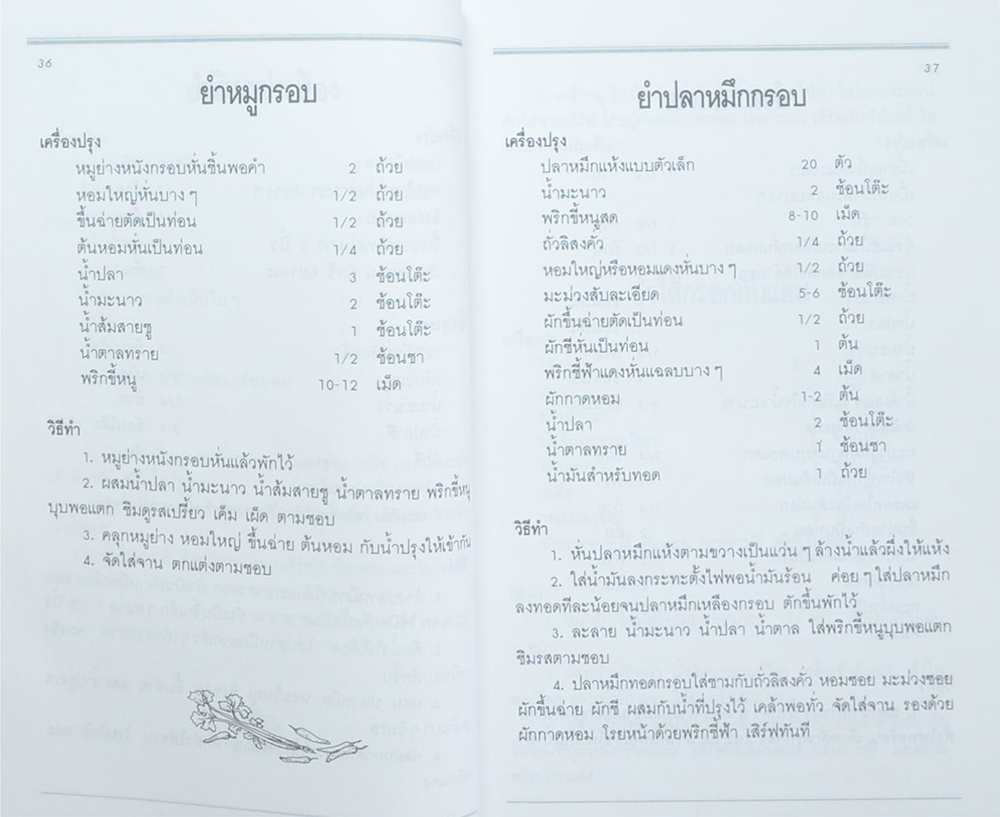 36
ยำหมูกรอบ
เครื่องปรุง
หมูย่างหนังกรอบหั่นชิ้นพอคำ 2 ถ้วย
หอมใหญ่หั่นบาง ๆ 1/2 ถ้วย
ขึ้นฉ่ายตัดเป็นท่อน 1/2 ถ้วย
ต้นหอมหั่นเป็นท่อน 1/4 ถ้วย
น้ำปลา 3 ช้อนโต๊ะ
น้ำมะนาว 2 ช้อนโต๊ะ
น้ำส้มสายชู 1 ช้อนโต๊ะ
น้ำตาลทราย 1/2 ช้อนชา
พริกขี้หนู 10-12 เม็ด
วิธีทำ
1. หมูย่างหนังกรอบหั่นแล้วพักไว้
2. ผสมน้ำปลา น้ำมะนาว น้ำส้มสายชู น้ำตาลทราย พริกขี้หนู
บุบพอแตก ชิมดูรสเปรี้ยว เค็ม เผ็ด ตามชอบ
3. คลุกหมูย่าง หอมใหญ่ ขึ้นฉ่าย ต้นหอม กับน้ำปรุงให้เข้ากัน
4. จัดใส่จาน ตกแต่งตามชอบ
37
ยำปลาหมึกกรอบ
เครื่องปรุง
ปลาหมึกแห้งแบบตัวเล็ก 20 ตัว
น้ำมะนาว 2 ช้อนโต๊ะ
พริกขี้หนูสด 8-10 เม็ด
ถั่วลิสงคั่ว 1/4 ถ้วย
หอมใหญ่หรือหอมแดงหั่นบาง ๆ 1/2 ถ้วย
มะม่วงสับละเอียด 5-6 ช้อนโต๊ะ
ผักขึ้นฉ่ายตัดเป็นท่อน 1/2 ถ้วย
ผักชีหั่นเป็นท่อน 1 ต้น
พริกชี้ฟ้าแดงหั่นแฉลบบาง ๆ 4 เม็ด
ผักกาดหอม 1-2 ต้น
น้ำปลา 2 ช้อนโต๊ะ
น้ำตาลทราย 1 ช้อนชา
น้ำมันสำหรับทอด 1 ถ้วย
วิธีทำ
1. หั่นปลาหมึกแห้งตามขวางเป็นแว่น ๆ ล้างน้ำแล้วผึ่งให้แห้ง
2. ใส่น้ำมันลงกระทะตั้งไฟพอน้ำมันร้อน ค่อย ๆ ใส่ปลาหมึก
ลงทอดทีละน้อยจนปลาหมึกเหลืองกรอบ ตักขึ้นพักไว้
3. ละลาย น้ำมะนาว น้ำปลา น้ำตาล ใส่พริกขี้หนูบุบพอแตก
ชิมรสตามชอบ
4. ปลาหมึกทอดกรอบใส่ชามกับถั่วลิสงคั่ว หอมซอย มะม่วงซอย
ผักขึ้นฉ่าย ผักชี ผสมกับน้ำที่ปรุงไว้ เคล้าพอทั่ว จัดใส่จาน รองด้วย
ผักกาดหอม โรยหน้าด้วยพริกชี้ฟ้า เสิร์ฟทันที